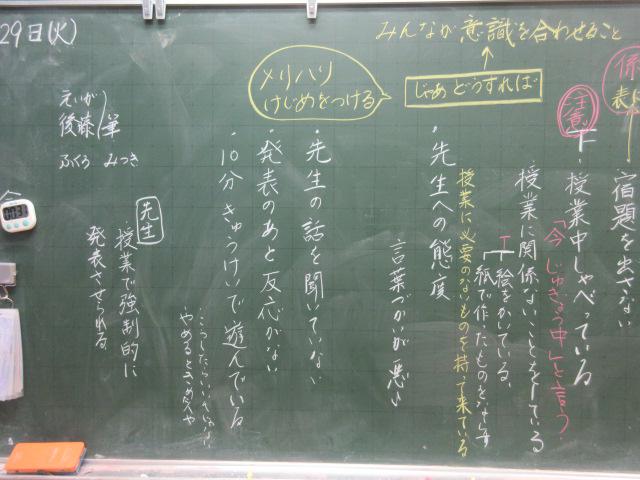 29日(火)
みんなが意識を合わせること
じゃあどうすれば
メリハリ
けじめをつける
係
表に
宿題を出さない
注意
授業中しゃべっている
「今じゅぎょう中」と言う
授業に関係ないことをしている
絵をかいている、
紙で作ったものをなおす
授業に必要のないものを持って来ている
・先生への態度
言葉づかいが悪い
・先生の話を聞いていない
・発表のあと反応がない
・10分きゅうけいで遊んでいる
先生
授業で強制的に
発表させられる
えいが
後藤
筆
ふくろ みつき